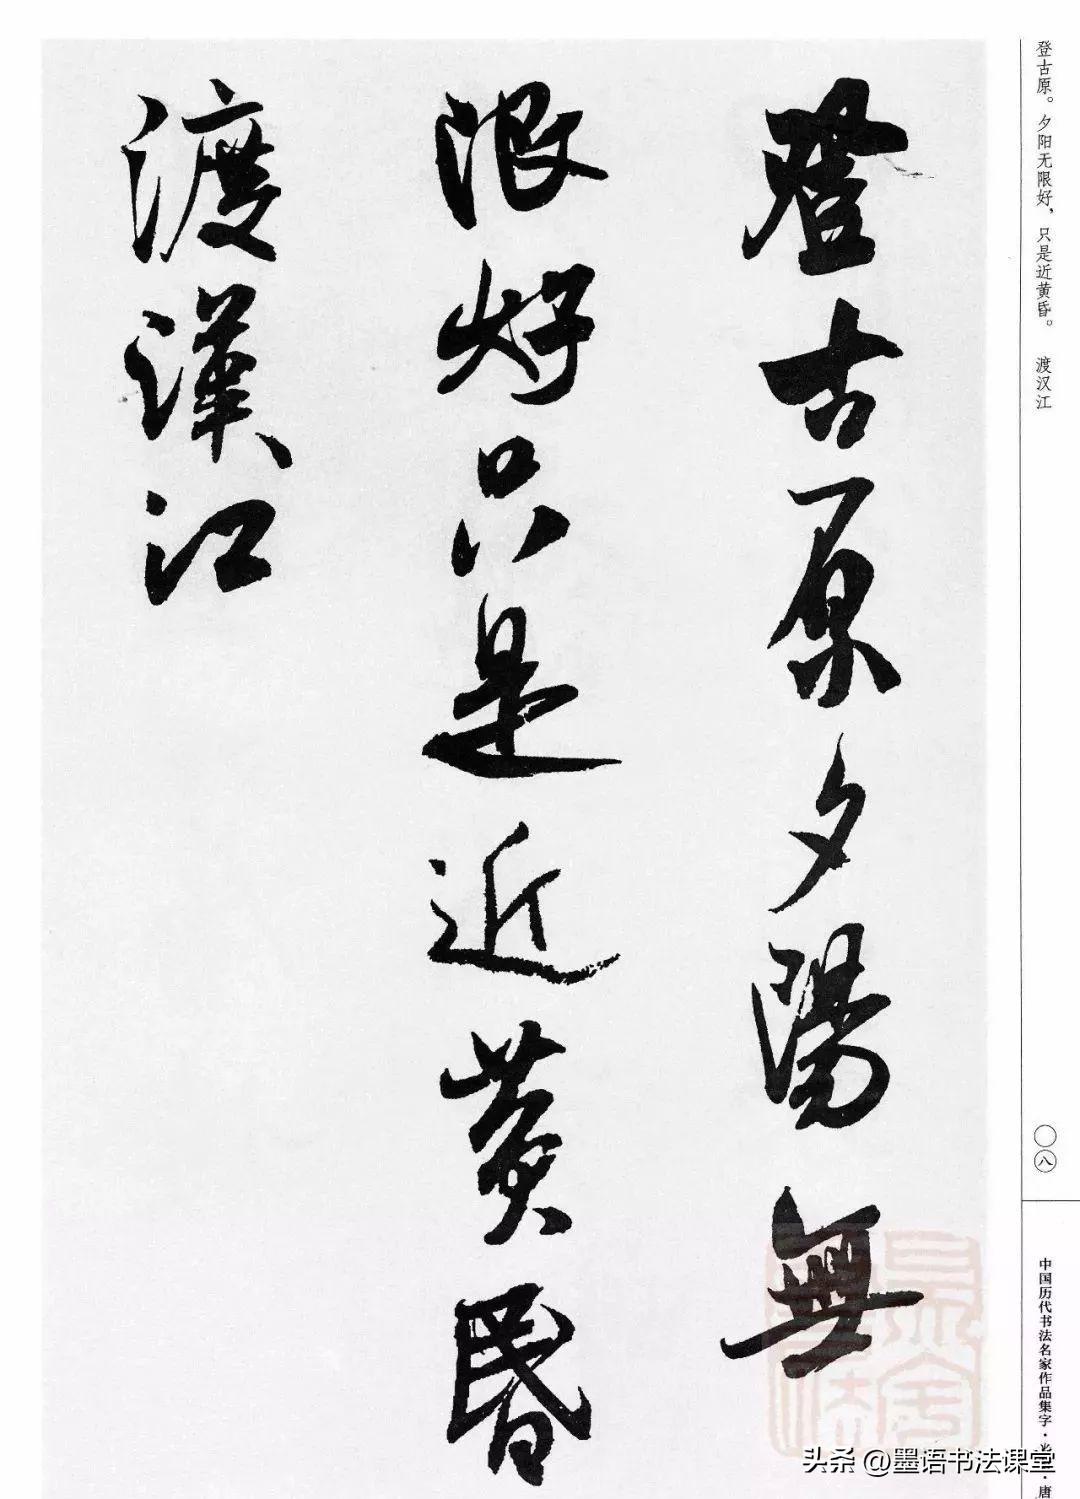 登古原。夕阳无限好，只是近黄昏。 渡汉江
登古原夕陽無
限好只是近黄昬
渡漢江
〇八
中国历代书法名家作品集字·
·唐
头条 @墨语书法课堂